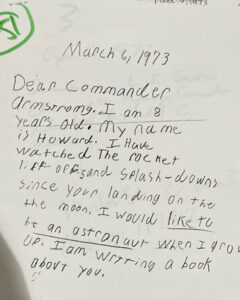 March 6, 1973
Dear Commander
Armstrong. I am 8
years old. My name
is Howard. I Have
watched The rocket
lift offs and splash-downs
since your landing on the
the moon. I would like to
be an astronaut when I grow
up. I am writing a book
about you.